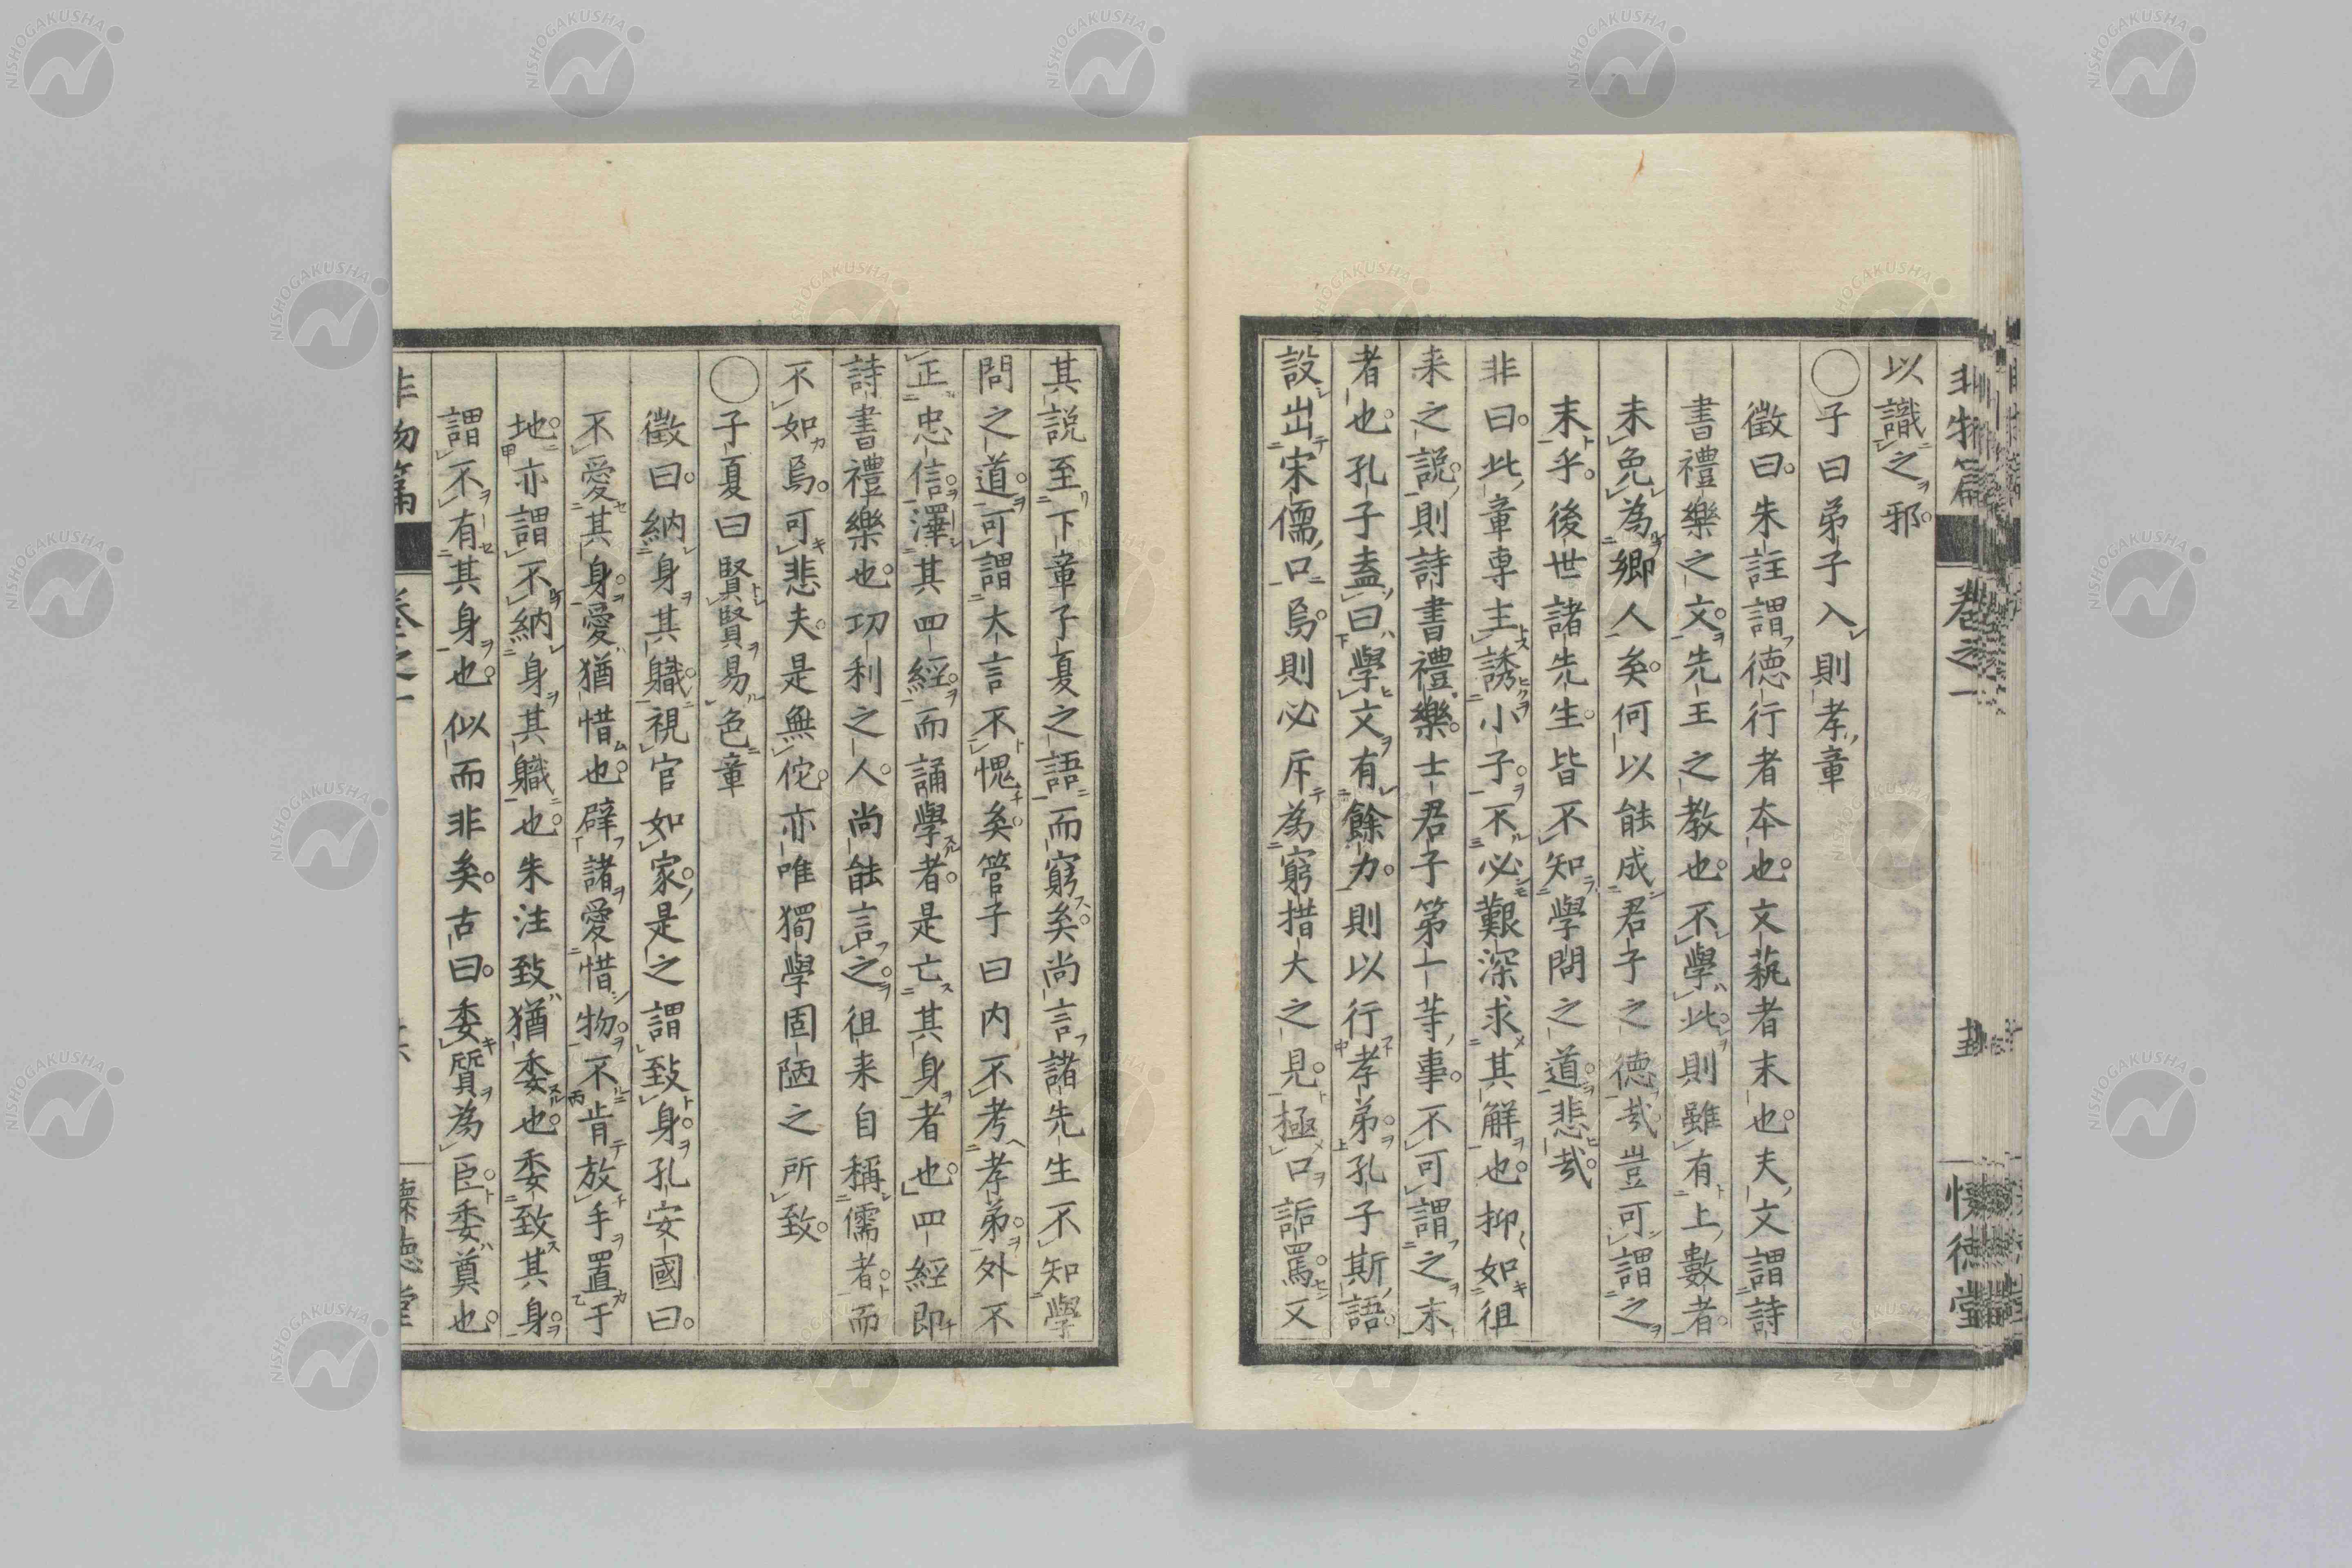 非物篇 卷之一 懷德堂
以識之邪。
○子曰弟子入則孝章
徵曰。朱註謂德行者本也。文藝者末也。夫文謂詩
書禮樂之文。先王之教也。不學此。則雖有上數者。
未免為鄉人矣。何以能成君子之德哉。豈可謂之
末乎。後世諸先生。皆不知學問之道。悲哉。
非曰。此章專主誘小子。不必艱深求其解也。抑如徂
来之說。則詩書禮樂。士君子第一等事。不可謂之末
者也。孔子盍曰學文有餘力。則以行孝弟。孔子斯語。
設出宋儒口。烏則必斥為窮措大之見。極口詬罵。又
其說至下章子夏之語而窮矣。尚言諸先生不知學
問之道。可謂大言不愧矣。管子曰内不考孝弟。外不
正忠信。澤其四經。而誦學者。是亡其身者也。四經即
詩書禮樂也。功利之人。尚能言之。徂来自稱儒者。而
不如烏。可悲夫。是無佗。亦唯獨學固陋之所致。
○子夏曰賢賢易色章
徵曰。納身其職。視官如家。是之謂致身。孔安國曰。
不愛其身。愛猶惜也。辟諸愛惜物。不肯放手置于
地。亦謂不納身其職也。朱注致猶委也。委致其身。
謂不有其身也。似而非矣。古曰。委質為臣。委奠也。
非物篇 卷之一 懷德堂